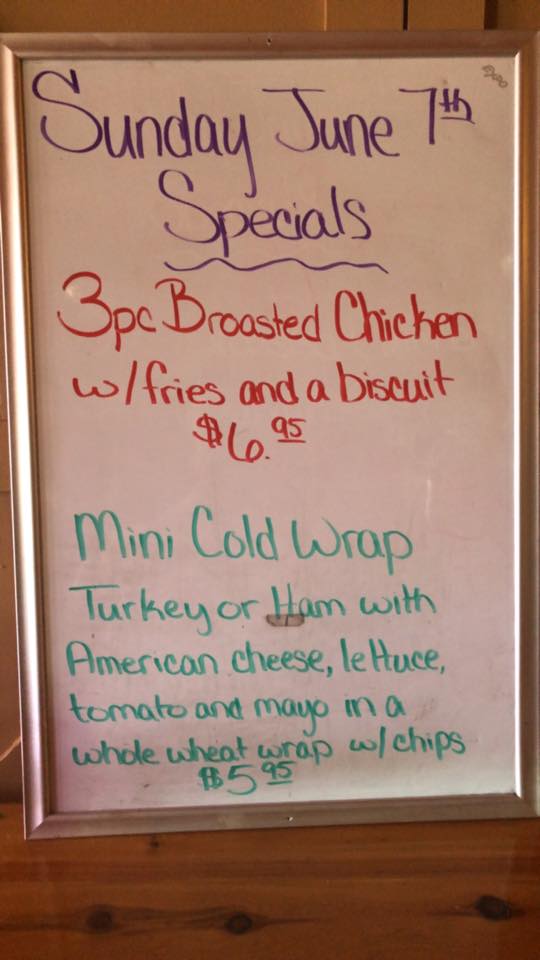 Sunday June 7th
Specials
3pc Broasted Chicken
w/fries and a biscuit
$6.95
Mini Cold Wrap
Turkey or Ham with
American cheese, lettuce,
tomato and mayo in a
whole wheat wrap w/chips
$5.95